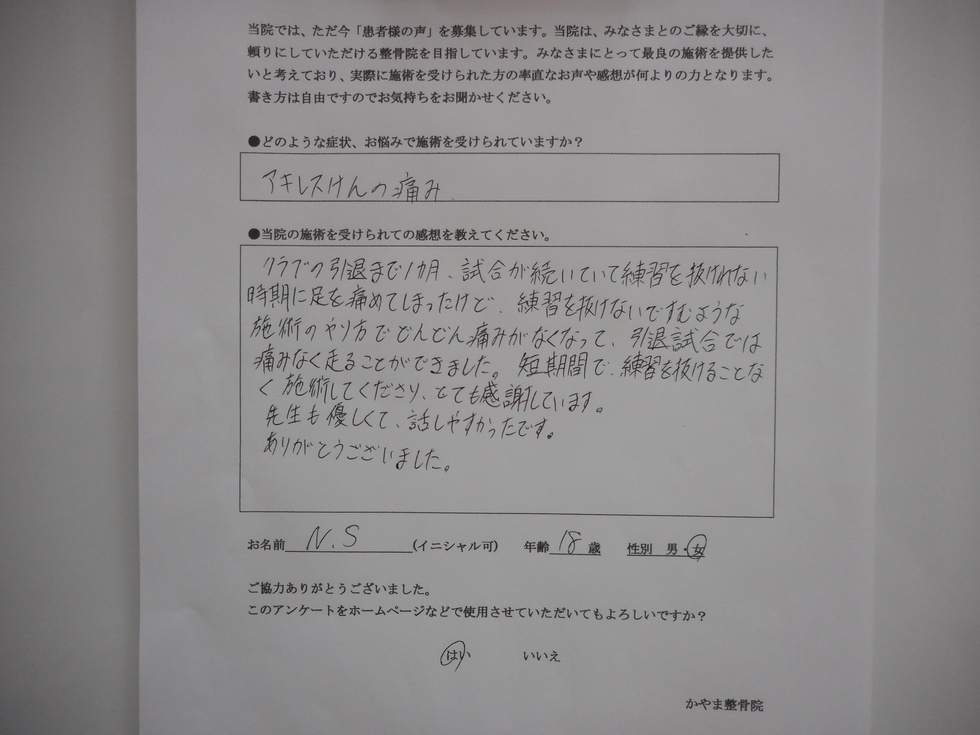 当院では、ただ今「患者様の声」を募集しています。当院は、みなさまとのご縁を大切に、
頼りにしていただける整骨院を目指しています。みなさまにとって最良の施術を提供した
いと考えており、実際に施術を受けられた方の率直なお声や感想が何よりの力となります。
書き方は自由ですのでお気持ちをお聞かせください。
●どのような症状、お悩みで施術を受けられていますか？
アキレスけんの痛み.
●当院の施術を受けられての感想を教えてください。
クラブの引退まで1カ月、試合が続いていて練習を抜けれない
時期に足を痛めてしまったけど、練習を抜けないですむような
施術のやり方でどんどん痛みがなくなって、引退試合では
痛みなく走ることができました。短期間で、練習を抜けることな
く施術してくださり、とても感謝しています。
先生も優しくて、話しやすかったです。
ありがとうございました。
お名前 N.S (イニシャル可) 年齢 18 歳 性別 男・女
ご協力ありがとうございました。
このアンケートをホームページなどで使用させていただいてもよろしいですか？
はい いいえ
かやま整骨院